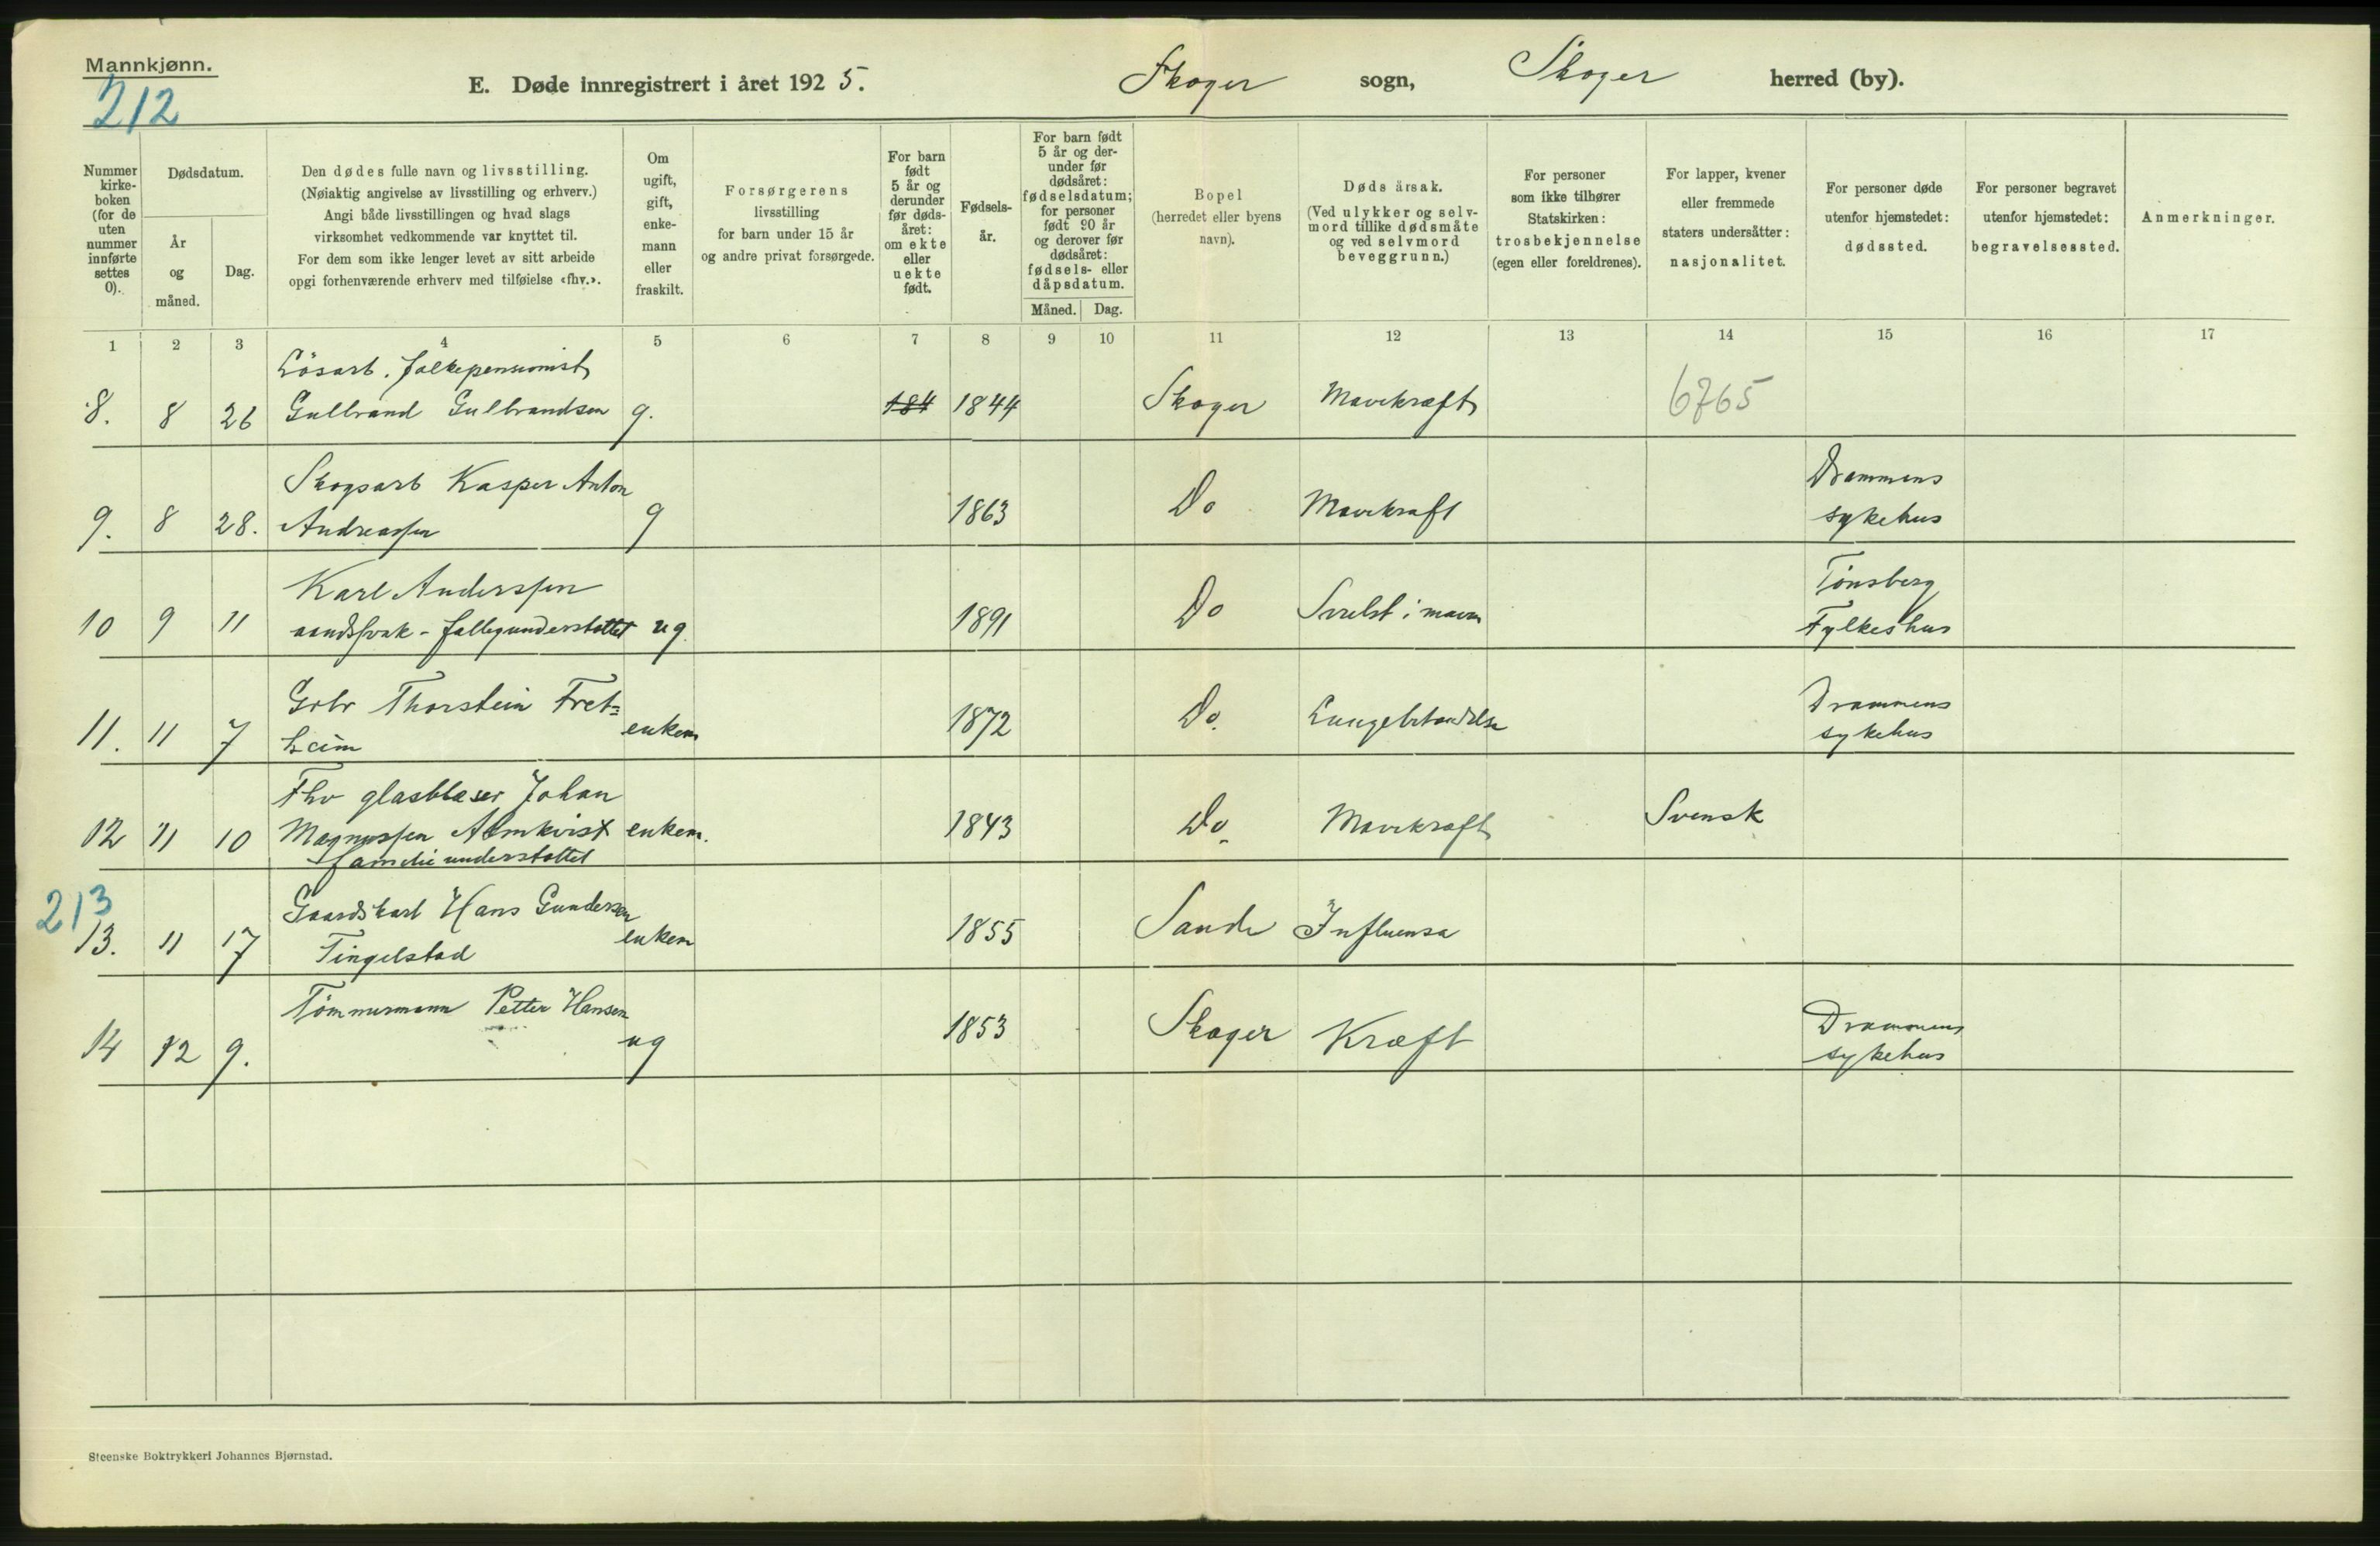 Mannkjønn.
212
E. Døde innregistrert i året 1925. Skoger sogn, Skoger herred (by).
Nummer kirke-boken (for de uten nummer innførte settes 0).
Dødsdatum.
År og måned.
Dag.
Den dødes fulle navn og livsstilling.
(Nøiaktig angivelse av livsstilling og erhverv.)
Angi både livsstillingen og hvad slags
virksomhet vedkommende var knyttet til.
For dem som ikke lenger levet av sitt arbeide
opgi forhenværende erhverv med tilføielse «fhv.».
Om ugift, gift, enke-mann eller fraskilt.
Forsørgerens
livsstilling
for barn under 15 år
og andre privat forsørgede.
For barn født 5 år og derunder før døds-året: om ekte eller uekte født.
Fødsels-år.
For barn født 5 år og der-under før dødsåret: fødselsdatum; for personer født 90 år og derover før dødsåret: fødsels- eller dåpsdatum.
Måned. Dag.
Bopel
(herredet eller byens
navn).
Døds årsak.
(Ved ulykker og selv-
mord tillike dødsmåte
og ved selvmord
beveggrunn.)
For personer
som ikke tilhører
Statskirken:
trosbekjennelse
(egen eller foreldrenes).
For lapper, kvener
eller fremmede
staters undersåtter:
nasjonalitet.
For personer døde
utenfor hjemstedet:
dødssted.
For personer begravet
utenfor hjemstedet:
begravelsessted.
Anmerkninger.
1 2 3 4 5 6 7 8 9 10 11 12 13 14 15 16 17
Lösarb. folkepensionist
8. 8 26 Gulbrand Gulbrandsen g. 184 1844 Skoger Mavekræft 6765
Skogsarb Kasper Anton
9. 8 28. Andreassen g 1863 Do Mavekraft Drammens sykehus
Karl Anderssen
10 9 11 aandssvak - fattigunderstøttet ug. 1891 Do Svulst i maven Tönsberg Fylkeshus
Gbr Thorstein Fret=
11. 11 7 heim enkem 1872 Do. Lungebetændelse Drammens sykehus
Fhv glasblaser Johan
12 11 10 Magnussen Almkvist enkem. 1843 Do. Mavekraft Svensk
familieunderstøttet
213
Gaardskarl Hans Gundersen
13. 11 17 Tingelstad enkem 1855 Sande Influensa
Tömmermann Petter Hansen
14 12 9. ug 1853 Skoger Kræft Drammens sykehus
Steenske Boktrykkeri Johannes Bjørnstad.